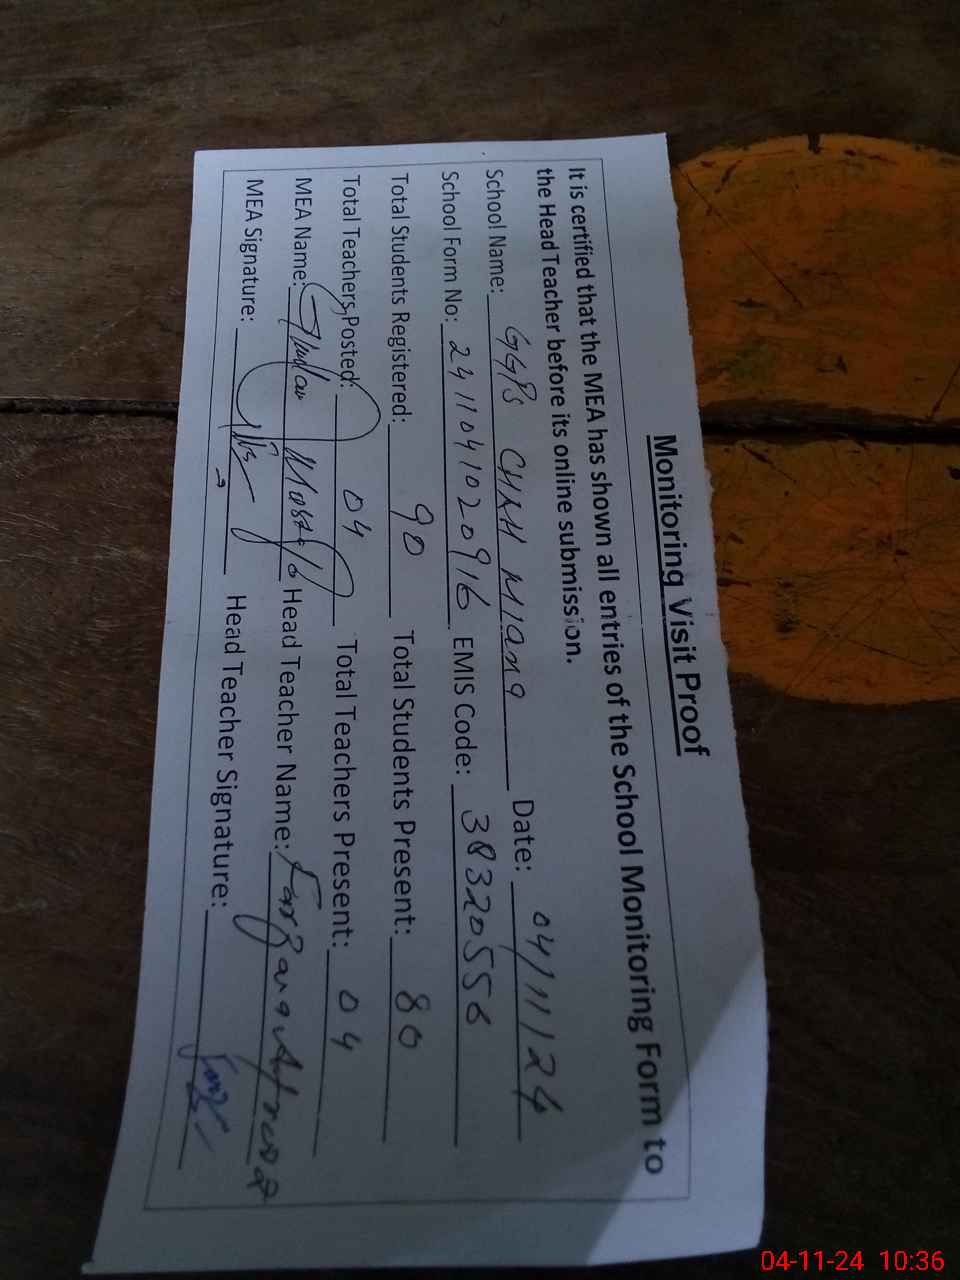 Monitoring Visit Proof
It is certified that the MEA has shown all entries of the School Monitoring Form to
the Head Teacher before its online submission.
School Name: GGPS CHKH Miana Date: 04/11/24
School Form No: 241104102 0916 EMIS Code: 38320556
Total Students Registered: 90 Total Students Present: 80
Total Teachers Posted: 04 Total Teachers Present: 04
MEA Name: Head Teacher Name: Farzana
MEA Signature: Head Teacher Signature:
04-11-24 10:36